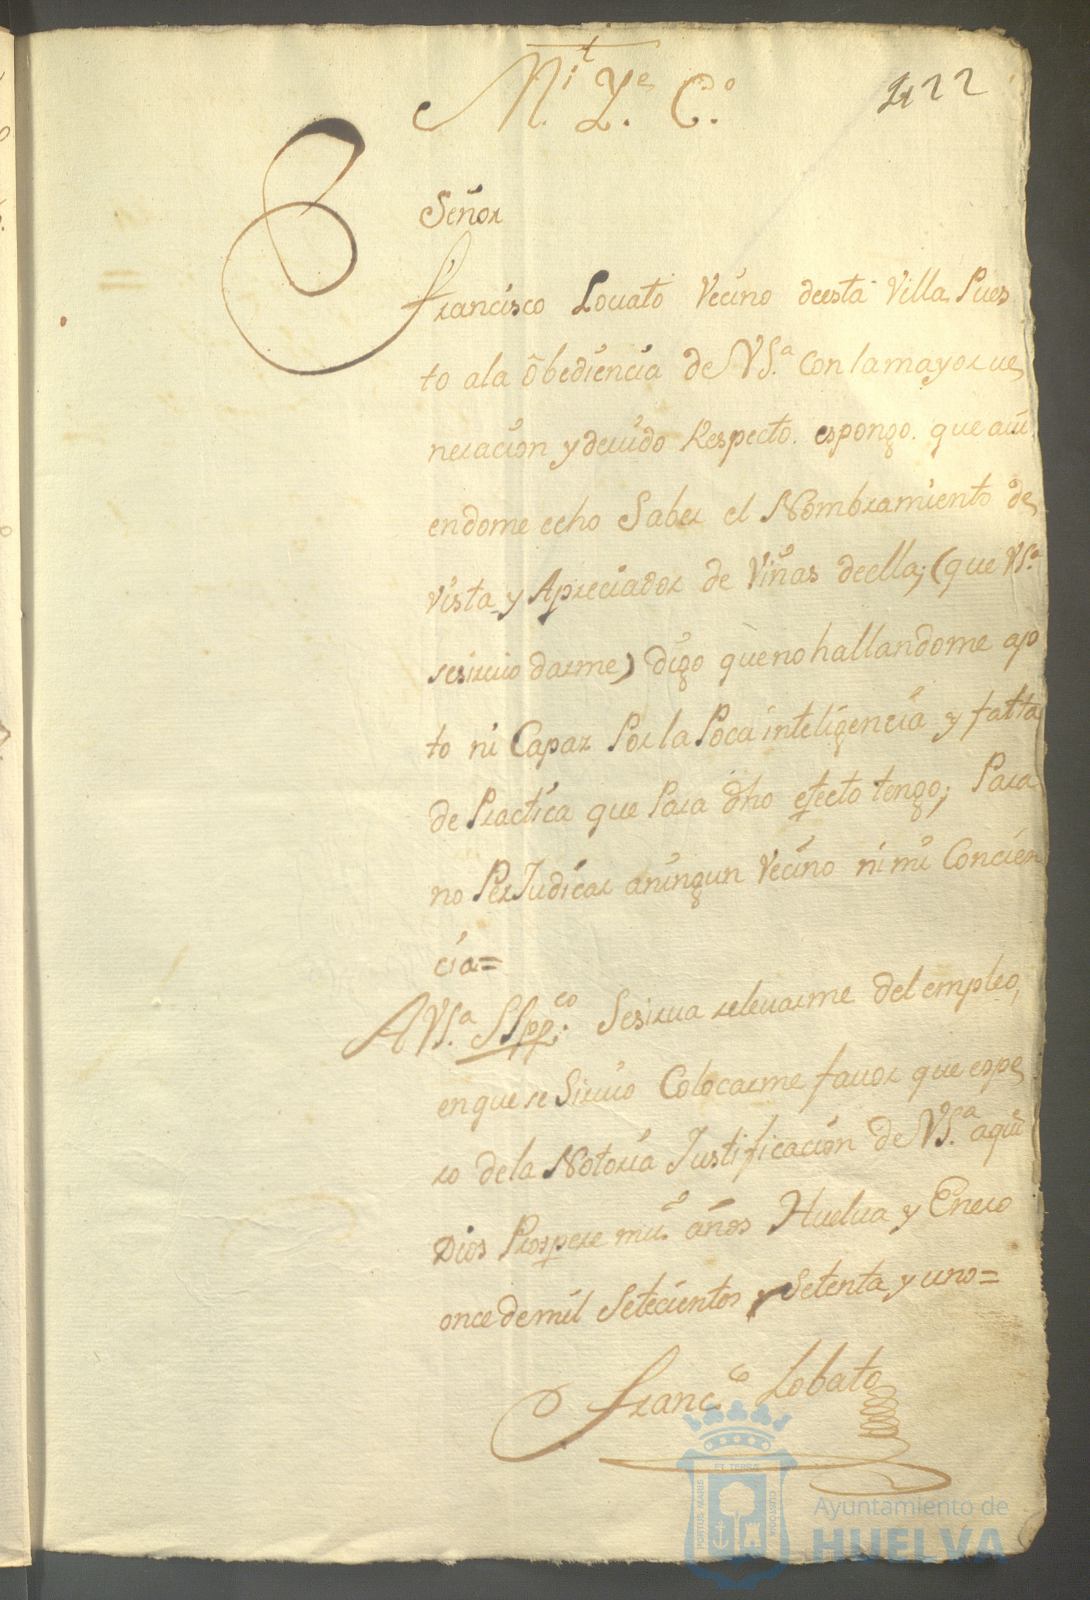 M.t Y.e C.o
422
Señor
Francisco Lovato Vecino deesta Villa Pues
to ala obediencia de VS.a con lamayor ve
neracion y devido Respecto. espongo. que avi
endome echo Saber el Nombramiento de
vista y Apreciador de Viñas deella; (que VS.a
sesirvio darme) digo quenohallandome apo
to ni Capaz Por la Poca inteligencia y falta
de Practica que Para dho efecto tengo; Para
no PerJudicar aningun Vecino ni mi Concien
cia=
AVS.a SSpp.co Sesirva relevarme del empleo,
enque se Sirvio Colocarme favor que espe
ro dela Notoria Justificacion de VS.a aqũ
Dios Prospere ms. años Huelva y Enero
once demil Setecientos y Setenta y uno=
Franc.co Lobato
PORTUS MARIS
ET TERRÆ
CUSTODIA
Ayuntamiento de
HUELVA